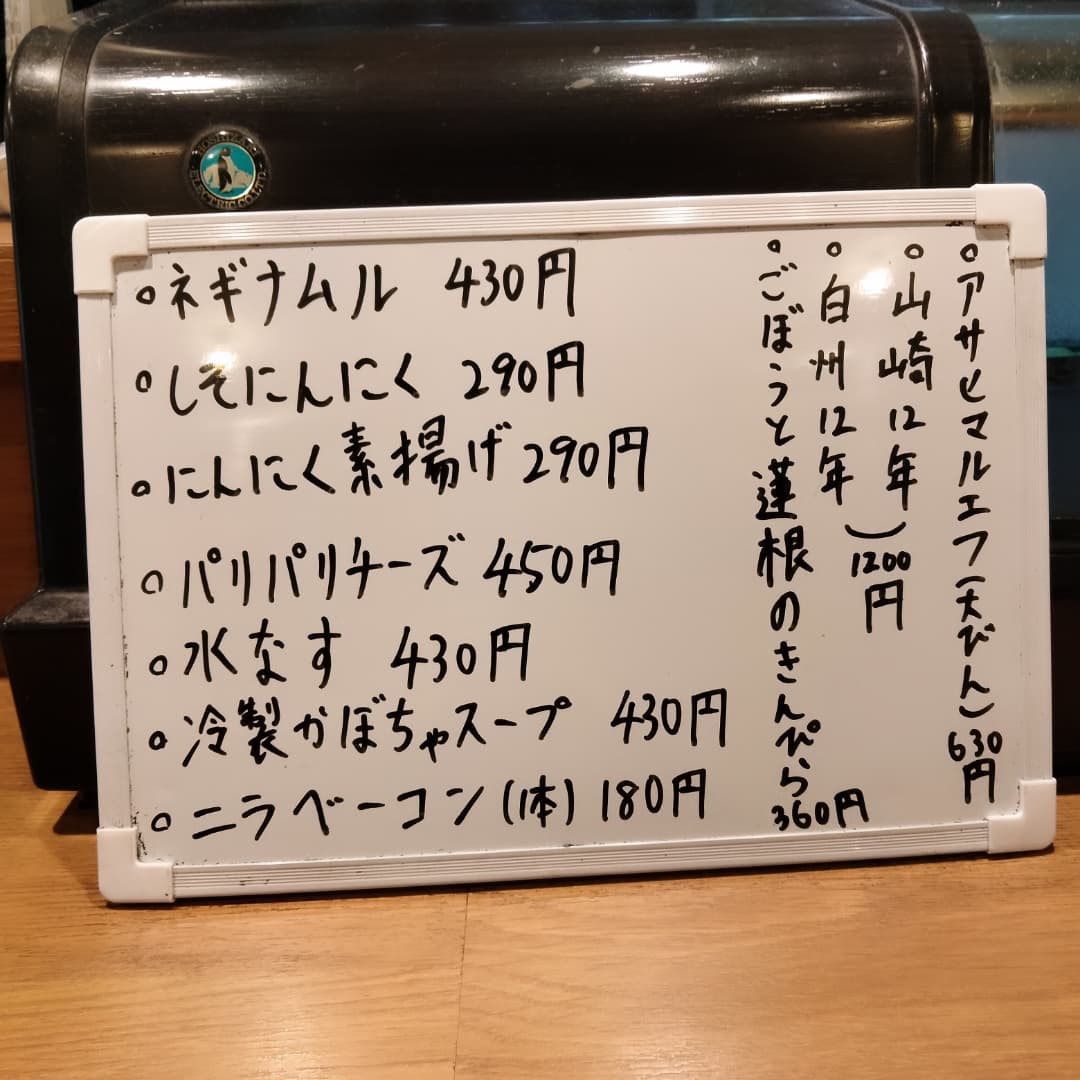 HOSHIZAKI ELECTRIC CO.,LTD.
○ネギナムル 430円
○しそにんにく 290円
○にんにく素揚げ 290円
○パリパリチーズ 450円
○水なす 430円
○冷製かぼちゃスープ 430円
○ニラベーコン(1本) 180円
○アサヒマルエフ(大びん) 630円
○山崎12年
○白州12年
1200円
○ごぼうと蓮根のきんぴら 360円